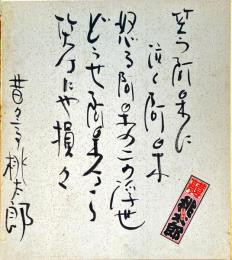 笑う阿呆に
泣く阿呆
怒る阿呆のこの浮世
どうせ阿呆なら
笑わにゃ損々
昔々亭桃太郎
桃太郎